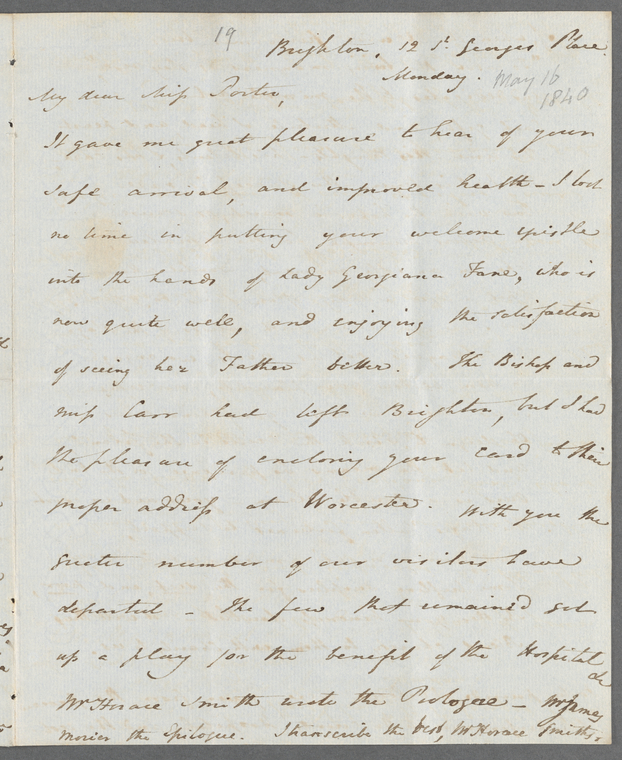 19
Brighton, 12 St. Georges Place.
Monday. May 16
1840
My dear Miss Porter,
It gave me great pleasure to hear of your
safe arrival, and improved health - I lost
no time in putting your welcome epistle
into the hands of Lady Georgiana Fane, who is
now quite well, and enjoying the satisfaction
of seeing her Father better. The Bishop and
Miss Carr had left Brighton, but I had
the pleasure of enclosing your card to their
proper address at Worcester. With you the
greater number of our visitors have
departed - The few that remained got
up a play for the benefit of the Hospital
Mr Horace Smith wrote the Prologue - Mr James
Morier the Epilogue. I transcribe the best, Mr Horace Smith's.